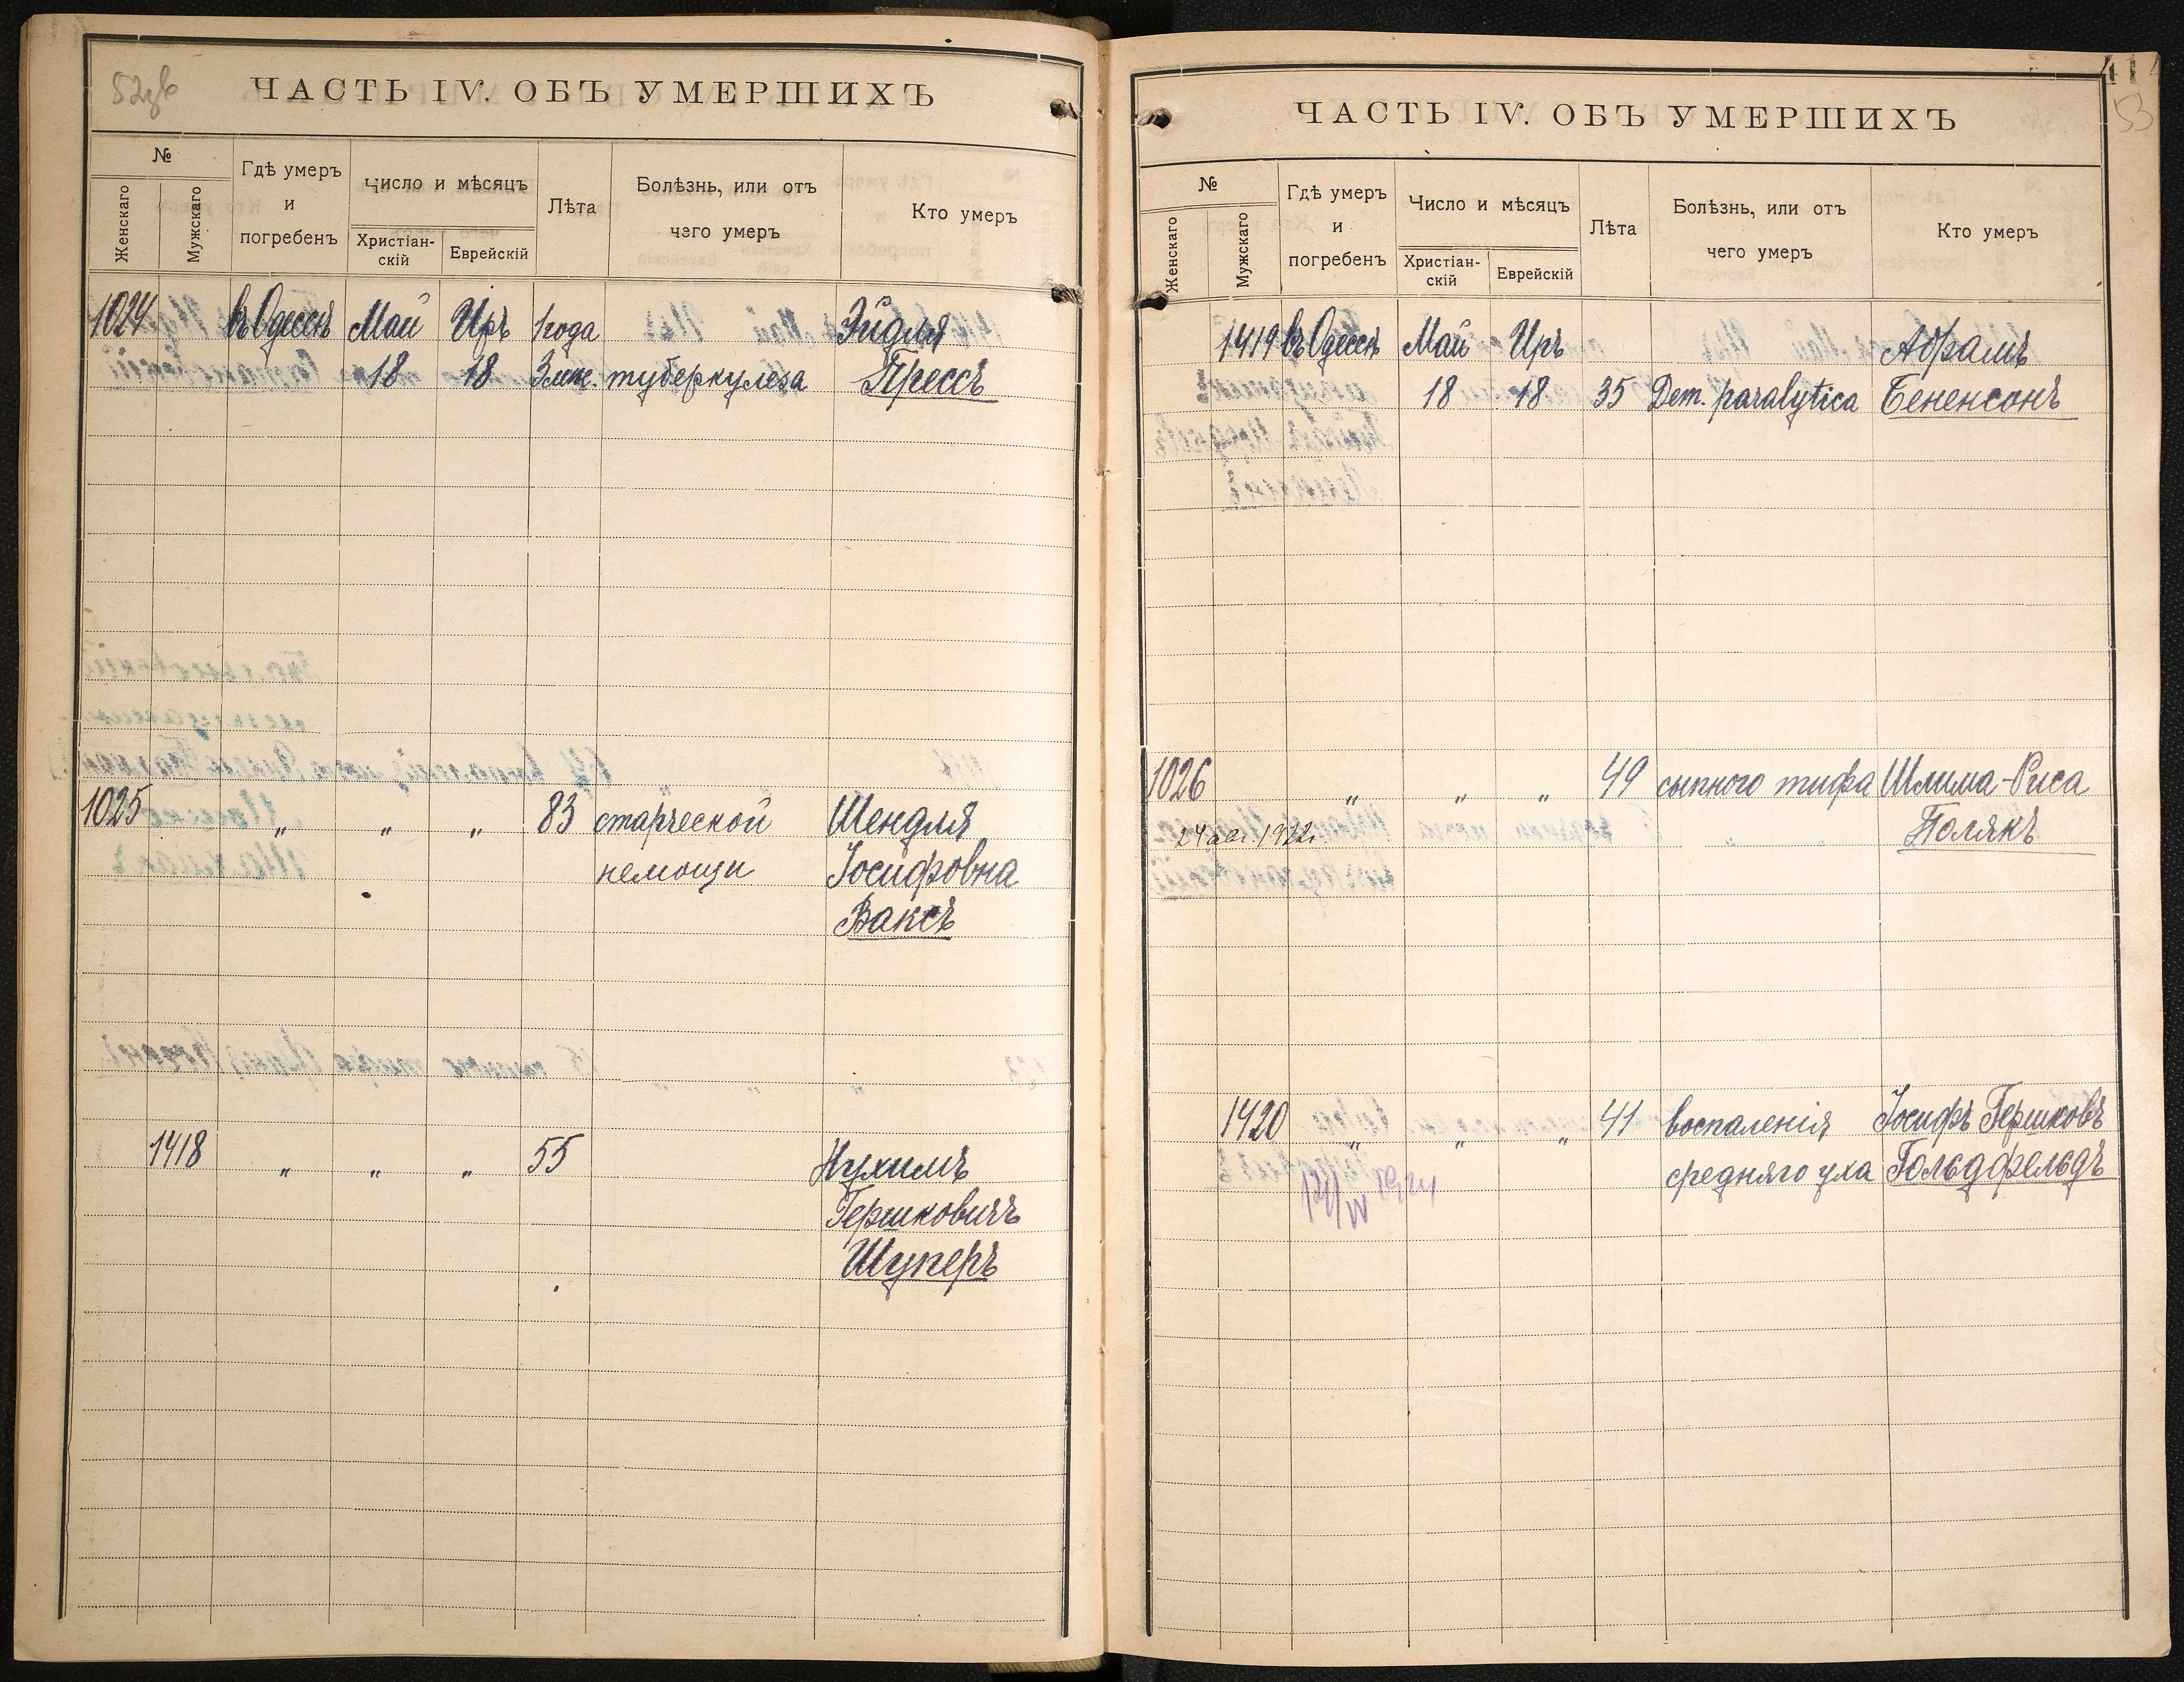 ЧАСТЬ IV. ОБЪ УМЕРШИХЪ
№
Женскаго
Мужскаго
Гдѣ умеръ
и
погребенъ
Число и мѣсяцъ
Христіан-
скій
Еврейскій
Лѣта
Болѣзнь, или отъ
чего умеръ
Кто умеръ
1024 въ Одессѣ Май Иръ 1 года Эйдля
18 18 3 мѣс. туберкулеза Прессъ
1025 „ „ „ 83 старческой Шендля
немощи Іосифовна
Ваксъ
1418 „ „ „ 55 Нухимъ
Гершковичъ
Шуперъ
ЧАСТЬ IV. ОБЪ УМЕРШИХЪ
53
№
Женскаго
Мужскаго
Гдѣ умеръ
и
погребенъ
Число и мѣсяцъ
Христіан-
скій
Еврейскій
Лѣта
Болѣзнь, или отъ
чего умеръ
Кто умеръ
1419 въ Одессѣ Май Иръ Абрамъ
18 18 35 Dem. paralytica Бененсонъ
1026 „ „ „ 49 сыпного тифа Шлима-Риса
24 авг. 1922 г. Полякъ
1420 „ „ „ 41 воспаленія Іосифъ Гершковъ
средняго уха Гольдфельдъ